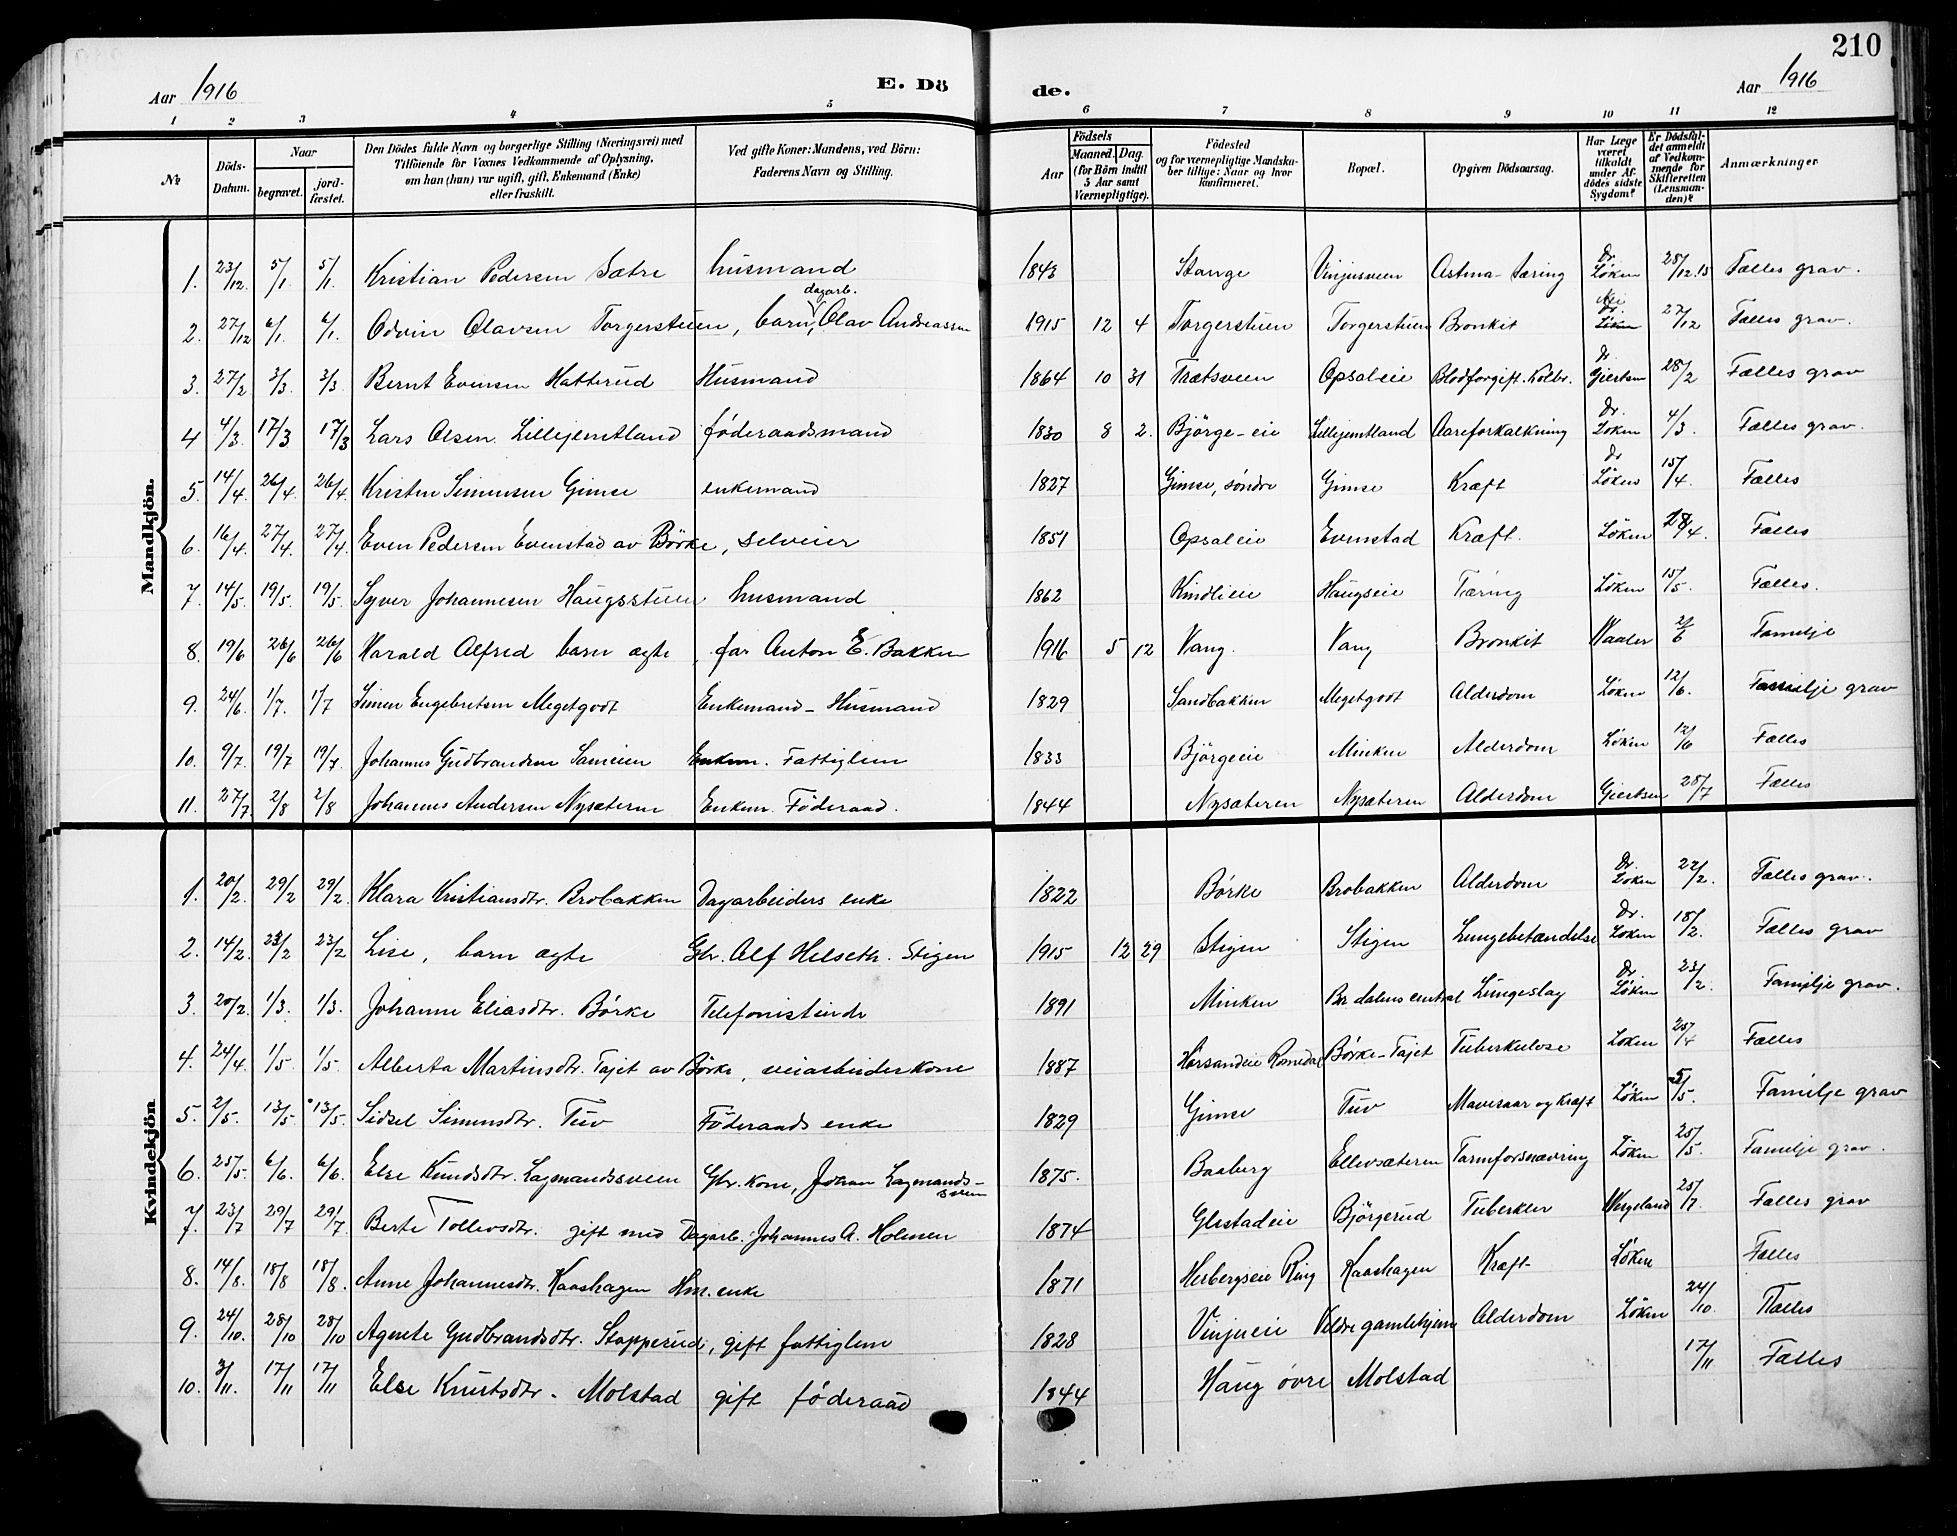 210
Aar 1916 E. Dö de. Aar 1916
1 2 3 4 5 6 7 8 9 10 11 12
No. Döds-Datum. Naar begravet. jord-fæstet. Den Dödes fulde Navn og borgerlige Stilling (Næringsvei) med Tilföiende for Voxnes Vedkommende af Oplysning, om han (hun) var ugift, gift, Enkemand (Enke) eller fraskilt. Ved gifte Koner: Mandens, ved Börn: Faderens Navn og Stilling. Födsels Aar Maaned. Dag. (for Börn indtil 5 Aar samt Værnepligtige). Födested og for værnepligtige Mandska-ber tillige: Naar og hvor konfirmeret. Bopæl. Opgiven Dödsaarsag. Har Læge været tilkaldt under Af-dödes sidste Sygdom? Er Dödsfal-det anmeldt af Vedkom-mende for Skifteretten (Lensman-den)? Anmærkninger
Mandkjön.
1. 23/12. 5/1. 5/1. Kristian Pedersen Sætre husmand 1843 Stange Vinjusveen Astma - tæring Dr. Løken 28/12.15 Fælles grav.
2. 27/12 6/1. 6/1. Odvin Olavsen Torgerstuen, barn, dagarb. Olav Andreassen 1915 12 4 Torgerstuen Torgerstuen Bronkit Nei Dr. Løken 27/12 Fælles grav.
3. 27/2 3/3. 3/3 Bernt Evensen Hatterud Husmand 1864 10 31 Trætsveen Opsaleie Blodforgift. Kolbr. Dr. Gjertsen 28/2 Fælles grav
4 4/3. 17/3 17/3 Lars Olsen Lillejemtland föderaadsmand 1830 8 2. Björge-eie Lillejemtland Aareforkalkning Dr. Løken 4/3. Fælles grav.
5. 14/4. 26/4. 26/4. Kristen Simensen Gimse enkemand 1827 Gimse, søndre Gimse Kræft Dr Løken 15/4. Fælles
6. 16/4. 27/4. 27/4. Even Pedersen Evenstad av Börke, selveier 1851 Opsaleie Evenstad Kræft. Løken 18/4. Fælles
7. 14/5. 19/5. 19/5. Syver Johannesen Haugsstuen husmand 1862 Kindlieie Haugseie Tæring Løken 15/5. Fælles.
8. 19/6 26/6 26/6 Harald Alfred barn ægte, far Anton E. Bakken 1916 5 12 Vang. Vang Bronkit Waaler 2/6 Familje
9. 24/6. 1/7. 1/7 Simen Engebretsen Megetgodt Enkemand - Husmand 1829 Sandbakken Megetgodt Alderdom Løken 12/6. Familje grav
10. 9/7. 19/7 19/7. Johannes Gudbrandsen Sameien Enkem. Fattiglem 1833 Björgeeie Minken Alderdom Løken 12/6 Fælles
11. 27/7 2/8 2/8 Johannes Andersen Nysæteren Enkem. Föderaad. 1844 Nysæteren Nysæteren Alderdom Gjertsen 28/7 Fælles
Kvindekjön
1. 20/2. 29/2 29/2. Klara Kristiansdtr. Brobakken Dagarbeiders enke 1822 Børke Brobakken Alderdom Dr. Løken 22/2. Fælles grav.
2. 14/2. 23/2 23/2 Lise, barn ægte Gbr. Alf Helseth. Stigen 1915 12 29 Stigen Stigen Lungebetændelse Dr. Løken 18/2. Fælles grav
3 20/2. 1/3. 1/3. Johanne Eliasdtr. Børke Telefonistinde 1891 Minken Br. dalens central Lungeslag Dr. Løken 23/2. Familje grav.
4. 24/4. 1/5. 1/5. Alberta Martinsdtr. Tajet av Børke, veiarbeiderkone 1887 Horsandeie Romedal Børke-Tajet Tuberkulose Løken 25/4 Fælles
5. 2/5. 13/5. 13/5. Sidsel Simensdtr. Tuv Föderaads enke 1829 Gimse Tuv Mavesaar og Kræft Løken 5/5. Familje grav
6. 25/5. 6/6. 6/6. Else Knudsdtr. Lagmandssveen Gbr. kone, Johan Lagmands-sveen 1875. Baaberg Ellevsæteren Tarmforsnævring Løken 25/5. Familje grav.
7. 23/7 29/7 29/7. Berte Tollevsdtr. gift med Dagarb. Johannes A. Holmen 1874 Glestadeie Björgerud Tuberkler Wergeland 25/7. Fælles grav
8. 14/8. 18/8 18/8. Anne Johannesdtr. Kaashagen Hm. enke 1871 Herbergseie Ring Kaashagen Kræft Løken Fælles
9. 24/10. 28/10 28/10 Agnete Gudbrandsdtr. Stopperud, gift fattiglem 1828 Vinjueie Veldre gamlehjem Alderdom Løken 24/10. Fælles
10. 3/11. 17/11 17/11 Else Knutsdtr. Molstad gift föderaad 1844 Haug övre Molstad 17/11 Fælles